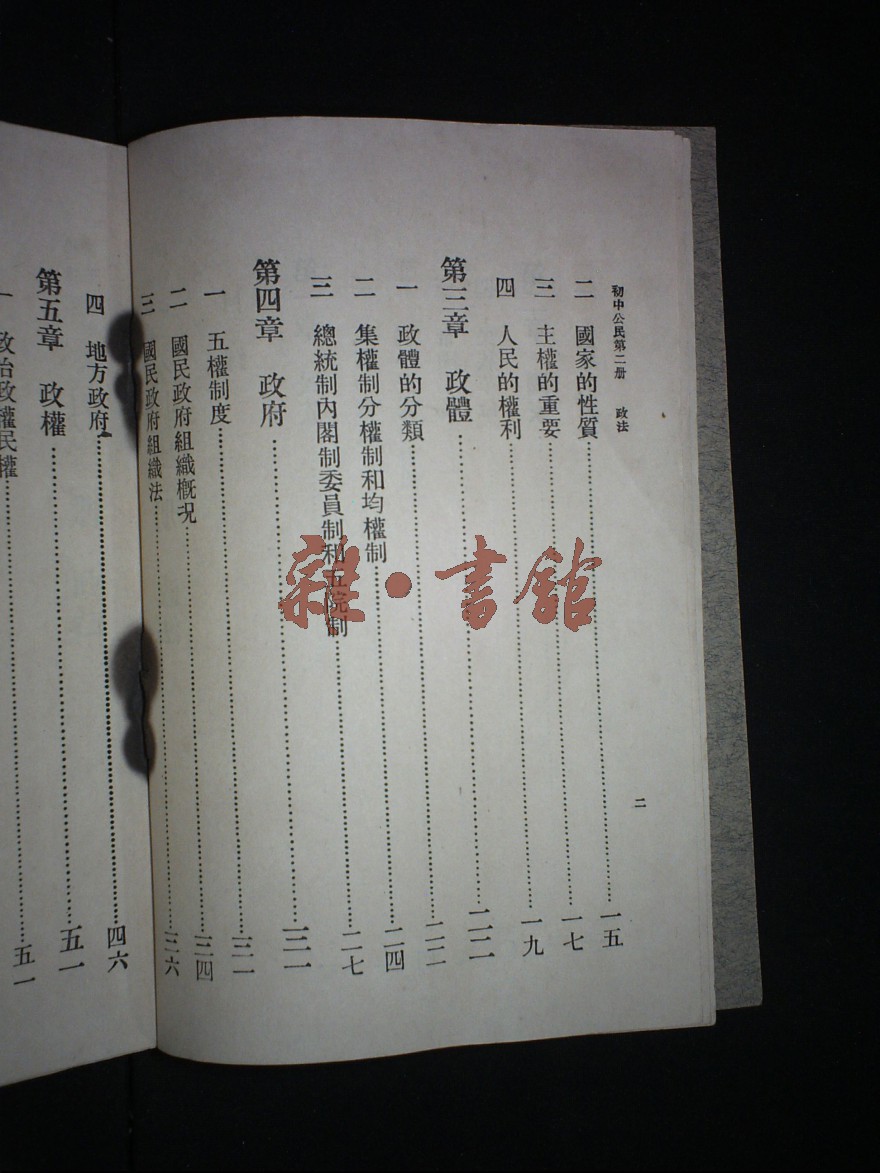 初中公民第二册 政法 二
二 國家的性質……一五
三 主權的重要……一七
四 人民的權利……一九
第三章 政體……二二
一 政體的分類……二二
二 集權制分權制和均權制……二四
三 總統制內閣制委員制和五院制……二七
第四章 政府……三一
一 五權制度……三一
二 國民政府組織概况……三四
三 國民政府組織法……三六
四 地方政府……四六
第五章 政權……五一
一 政治政權民權……五一
雜·書館